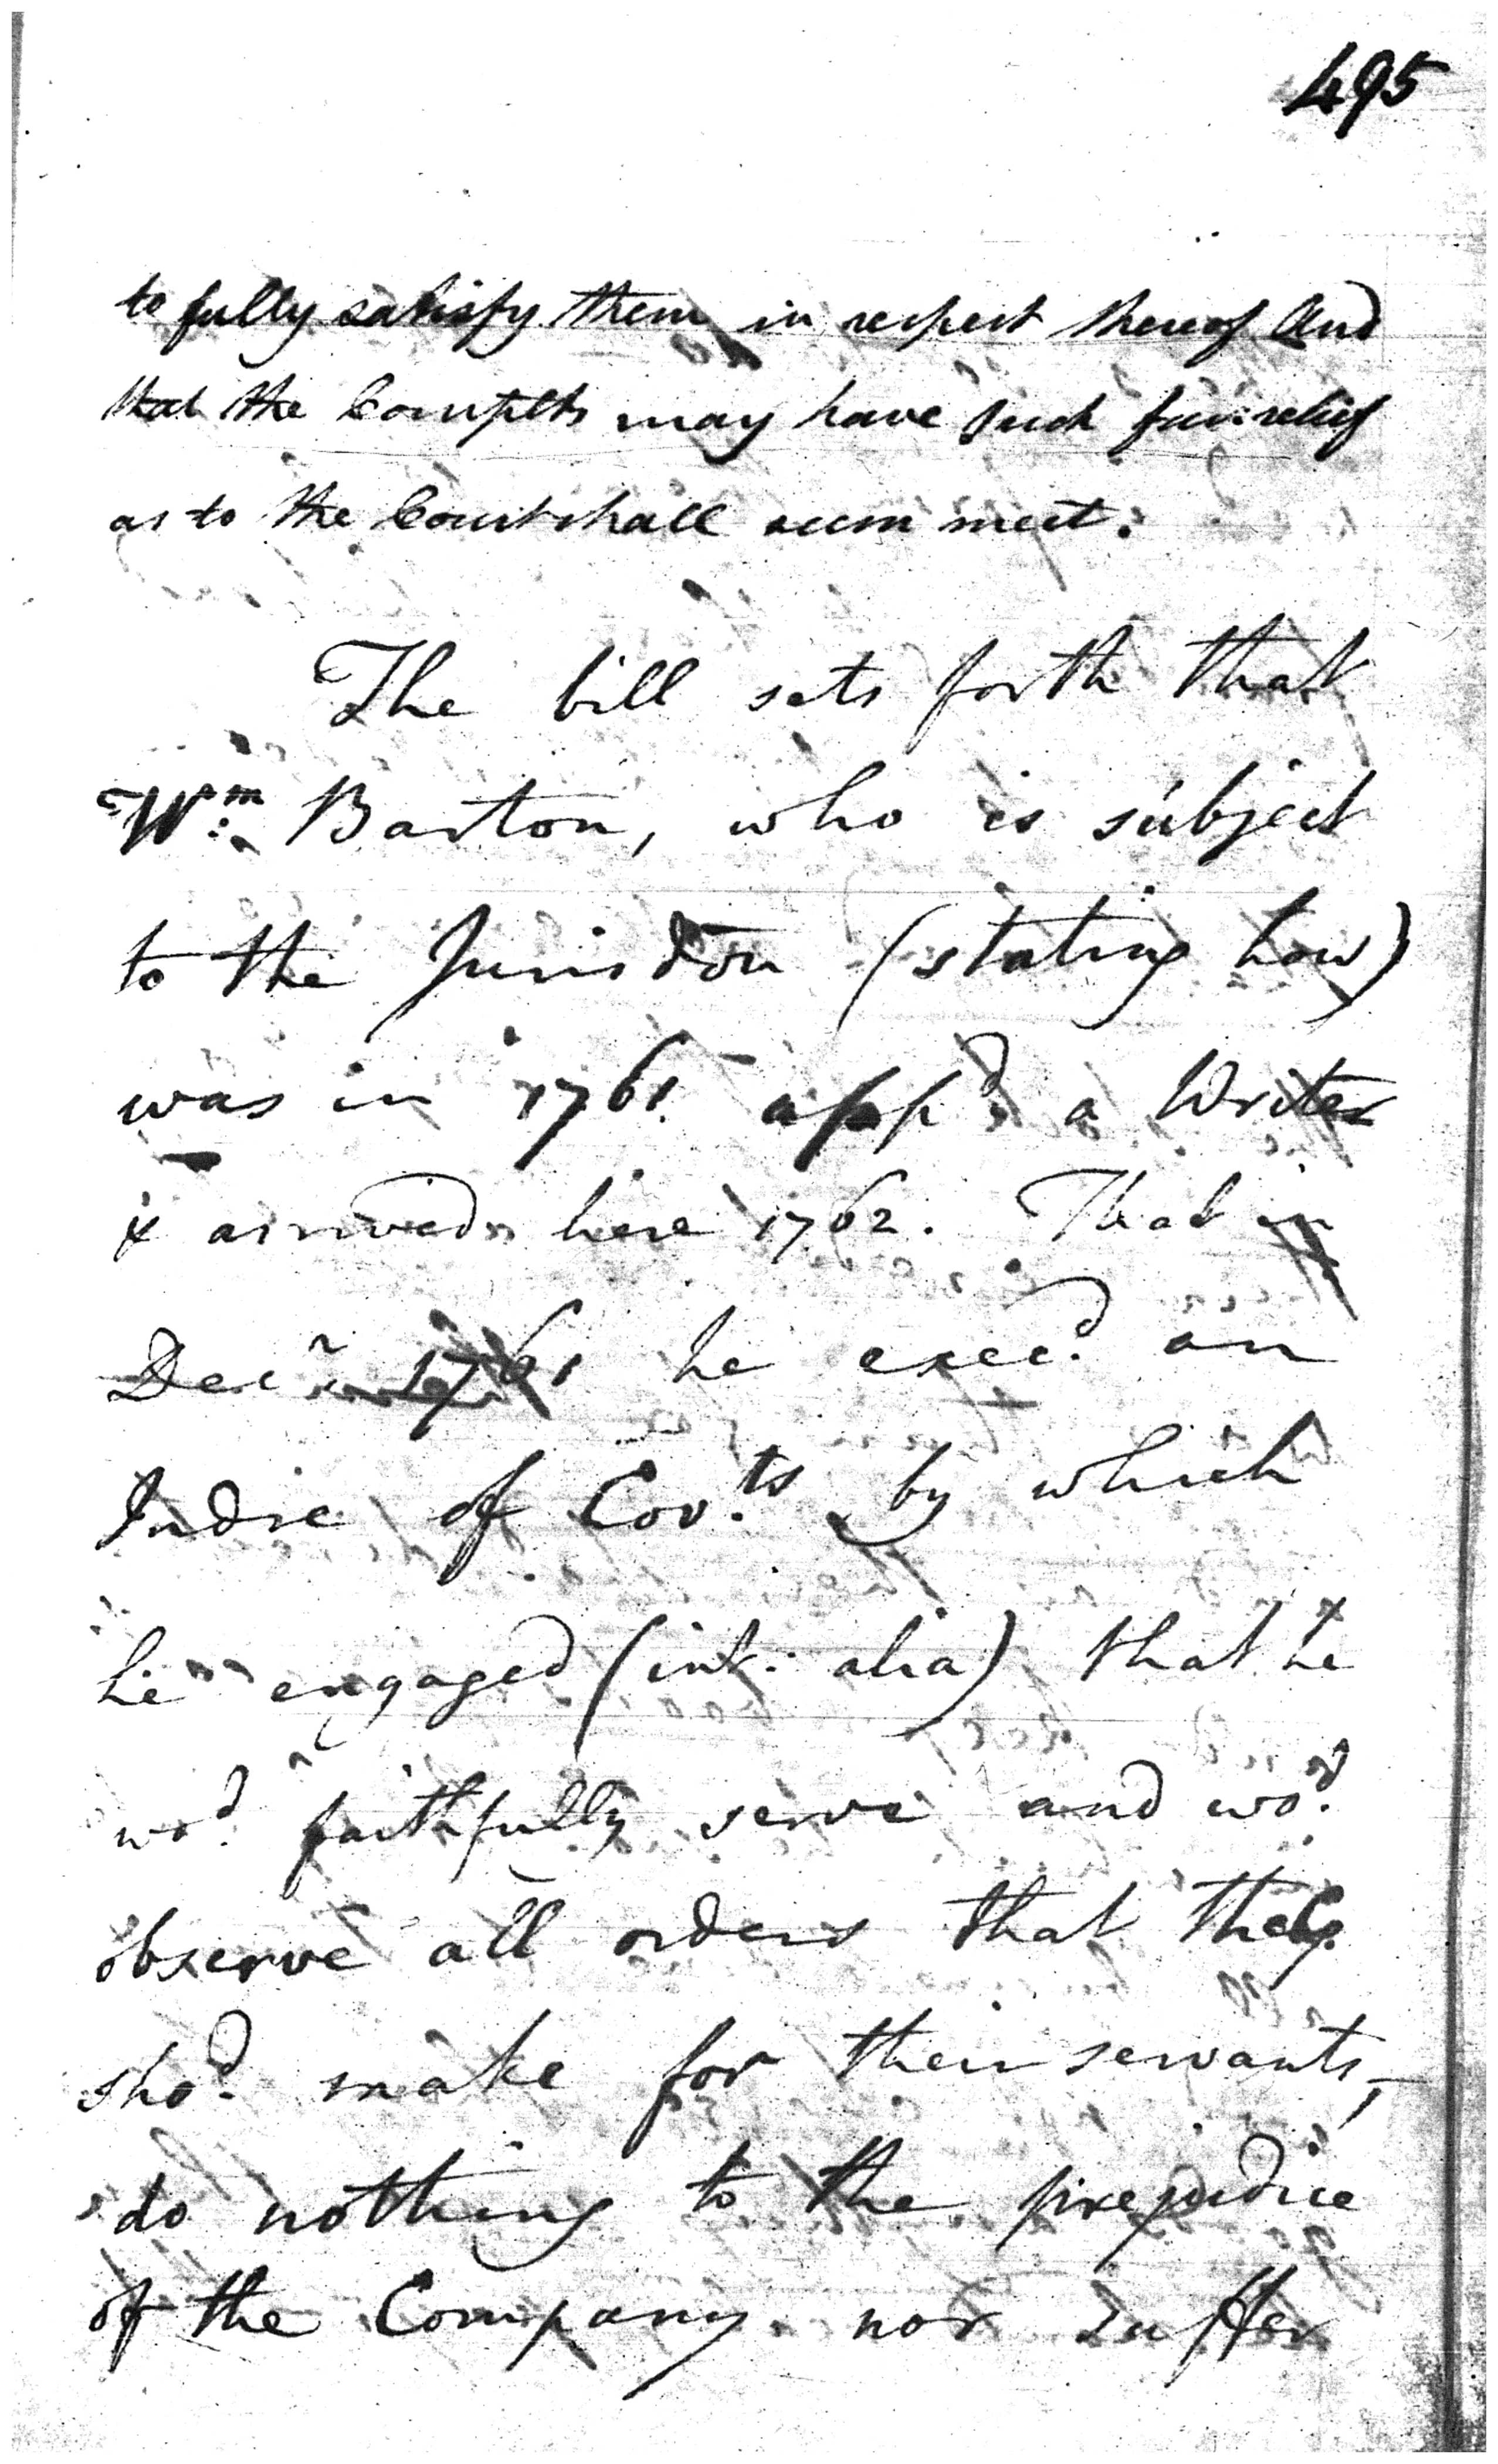 495
to fully satisfy them in respect thereof And
that the Complts may have such fur: relief
as to the Court shall seem meet.
The bill sets forth that
Wm Barton, who is subject
to the Jurisdon (stating how)
was in 1761. appd. a Writer
& arrived here 1762. That in
Decr 1761 he execd. an
Indre of Covts. by which
he engaged (int: alia) that he
wod. faithfully serve and wod.
observe all orders that the Co.
shod. make for their servants,
do nothing to the prejudice
of the Company nor suffer